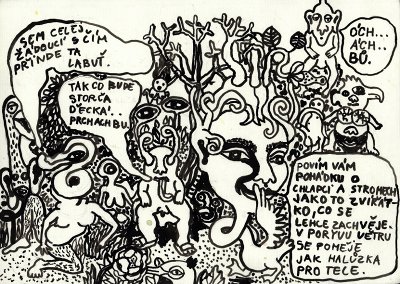 SEM CELEJ
ŽÁDOUCÍ S ČÍM
PŘINDE TA
LABUŤ.
TAK CO BUDE
STORČA
D'ECKÁ..
PRCHÁCHBU.
ÓCH...
ÁCH..
BÓ.
POVÍM VÁM
POHÁDKU O
CHLAPCI A STROMECH
JAKO TO ZVÍŘÁT-
KO, CO SE
LEHCE ZACHVĚJE.
V PORYVU VĚTRU
SE POHEJE
JAK HALÚZKA
PRO TELE.